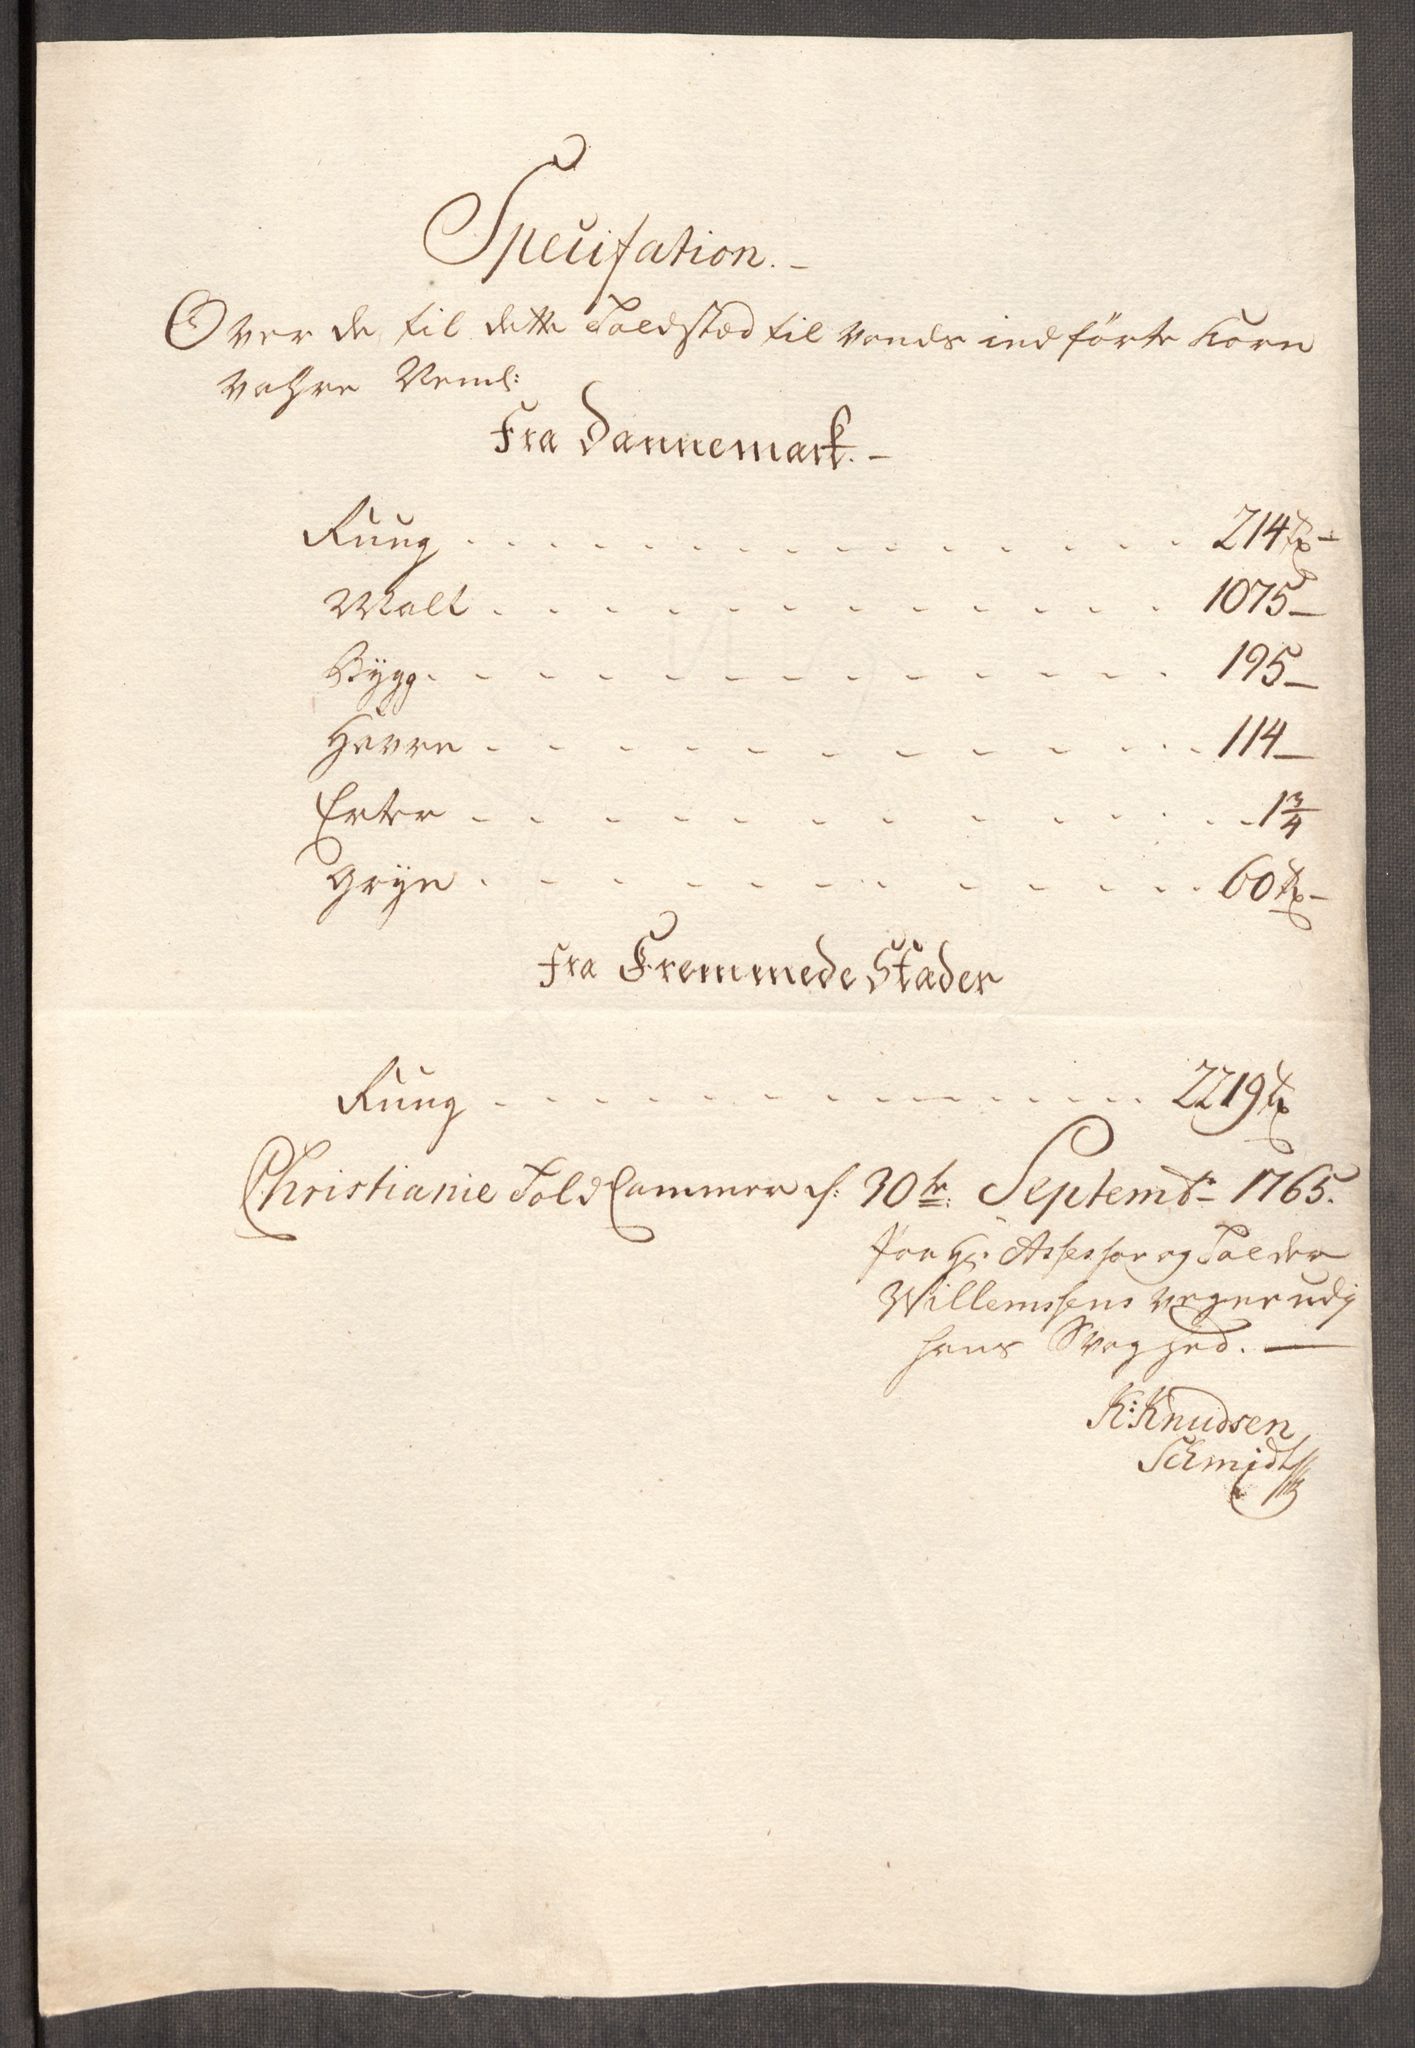 Specification.
Over de til dette Toldsted til vands indførte Korn
vahre Neml:
Fra Dannemark.
Rung 214 tr
Malt 1075
Bygg 195
Havre 114
Erter 1 3/4
Gryn 60 tr
Fra Fremmede Stæder
Rung 2219 tr
Christianie Told Cammer d: 30te: Septembr 1765.
for Hr: Assessor og Tolder
Willemssens veger udj
hans Svaghed.
K: Knudsen
Schmidt